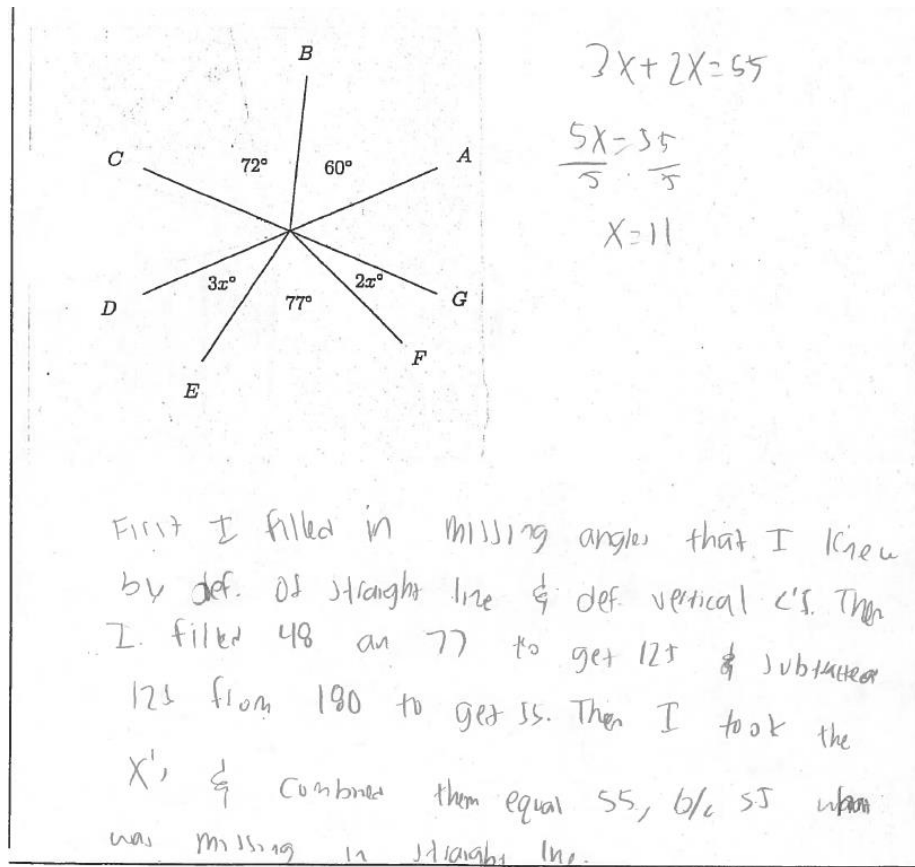 B
C
72°
60°
A
D
3x°
77°
2x°
G
E
F
3X + 2X = 55
5X = 55
5 5
X = 11
First I filled in missing angles that I knew
by def. of straight line & def. vertical <'s. Then
I filled 48 an 77 to get 125 & subtracted
125 from 180 to get 55. Then I took the
X's & combined them equal 55, b/c 55
was missing in straight line.